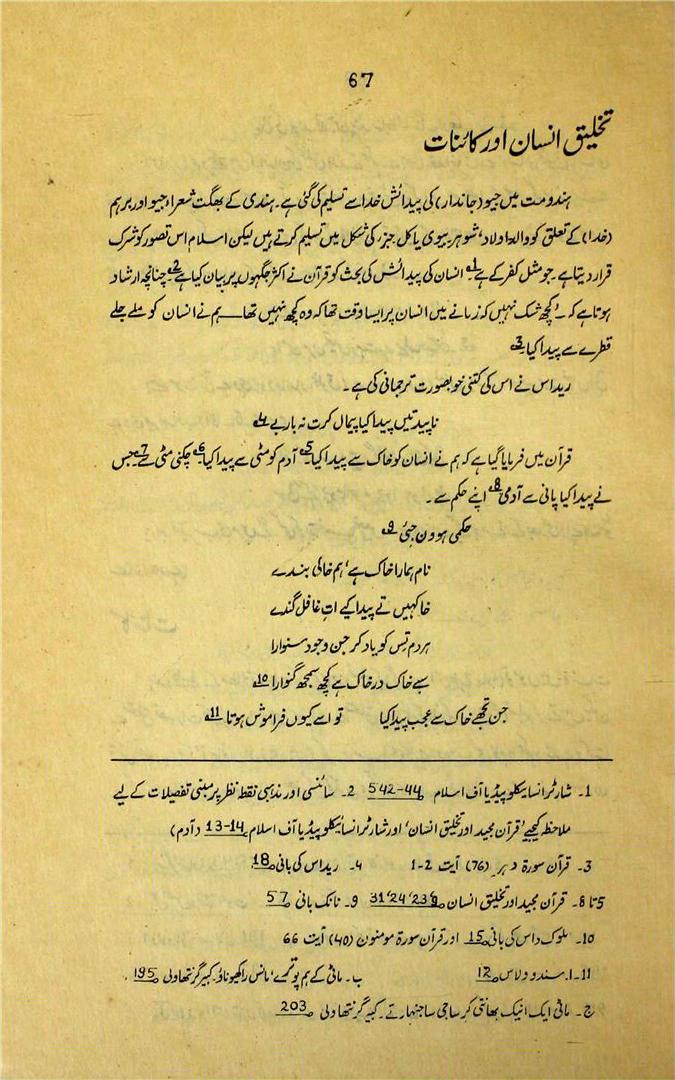 67
تخلیق انسان اور کائنات
ہندو مت میں جیو (جاندار) کی پیدائش خدا سے تسلیم کی گئی ہے۔ ہندی کے بھگت شعراء جیو اور برہم
(خدا) کے تعلق کو والد اولاد، شوہر بیوی یا کل جز، کی شکل میں تسلیم کرتے ہیں لیکن اسلام اس تصور کو شرک
قرار دیتا ہے۔ جو مثل کفر کے ہے 1۔ انسان کی پیدائش کی بحث کو قرآن نے اکثر جگہوں پر بیان کیا ہے 2۔ چنانچہ ارشاد
ہوتا ہے کہ۔ 'کچھ شک نہیں کہ زمانے میں انسان پر ایسا وقت تھا کہ وہ کچھ نہیں تھا۔ ہم نے انسان کو ملے جلے
قطرے سے پیدا کیا 3
ریداس نے اس کی کتنی خوبصورت ترجمانی کی ہے۔
ناپید تیں پیدا کیا پیمال کرت نہ بار بے 4
قرآن میں فرمایا گیا ہے کہ ہم نے انسان کو خاک سے پیدا کیا 5۔ آدم کو مٹی سے پیدا کیا 6 چکنی مٹی سے 7۔ جس
نے پیدا کیا پانی سے آدمی 8 اپنے حکم سے۔
حکمی ہوون جئی 9
نام ہمارا خاک ہے، ہم خالی بندے
خاکہیں تے پیدا کیے اتِ غافل گندے
ہر دم تِس کو یاد کر جن وجود سنوارا
سبے خاک در خاک ہے کچھ سمجھ گنوارا 10
جن تجھے خاک سے عجب پیدا کیا تو اسے کیوں فراموش ہوتا 11
1۔ شارٹر انسائیکلوپیڈیا آف اسلام 542-44 2۔ سائنسی اور مذہبی نقطۂ نظر پر مبنی تفصلات کے لیے
ملاحظہ کیجیے 'قرآن مجید اور تخلیق انسان' اور شارٹر انسائیکلوپیڈیا آف اسلام 13-14 (آدم)
3۔ قرآن سورۃ دہر (76) آیت 2-1 4۔ ریداس کی بانی 18
5 تا 8۔ قرآن مجید اور تخلیق انسان 23، 24، 31 9۔ نانک بانی 57
10۔ ملوک داس کی بانی 15 اور قرآن سورۃ مومنون (40) آیت 66
11۔ ا۔ سندو ولاس 12 ب۔ ماٹی کے ہم پوتھرے، مانس راکھیو ناؤ۔ کبیر گرنتھاولی 195
ج۔ ماٹی ایک انیک بھانتی کر ساجی ساجنہارتے۔ کبیر گرنتھاولی 203